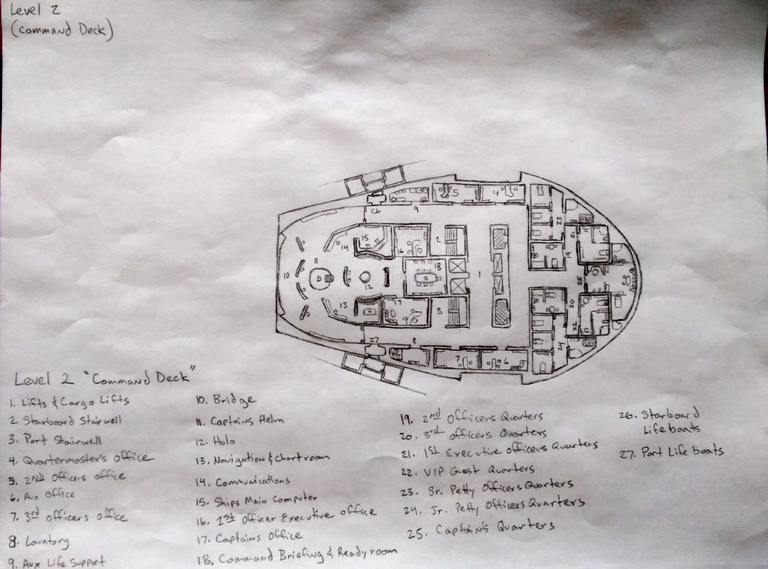 Level 2
(Command Deck)
Level 2 "Command Deck"
1. Lifts & Cargo Lifts
2. Starboard Stairwell
3. Port Stairwell
4. Quartermaster's Office
5. 2ND Officers office
6. Aux Office
7. 3rd officers office
8. Lavatory
9. Aux Life Support
10. Bridge
11. Captains Helm
12. Holo
13. Navigation & Chartroom
14. Communications
15. Ships Main Computer
16. 1st Officer Executive office
17. Captains Office
18. Command Briefing & Ready room
19. 2nd Officers Quarters
20. 3rd Officers Quarters
21. 1st Executive Officers Quarters
22. VIP Guest Quarters
23. Sr. Petty Officers Quarters
24. Jr. Petty Officers Quarters
25. Captain's Quarters
26. Starboard
Lifeboats
27. Port Lifeboats